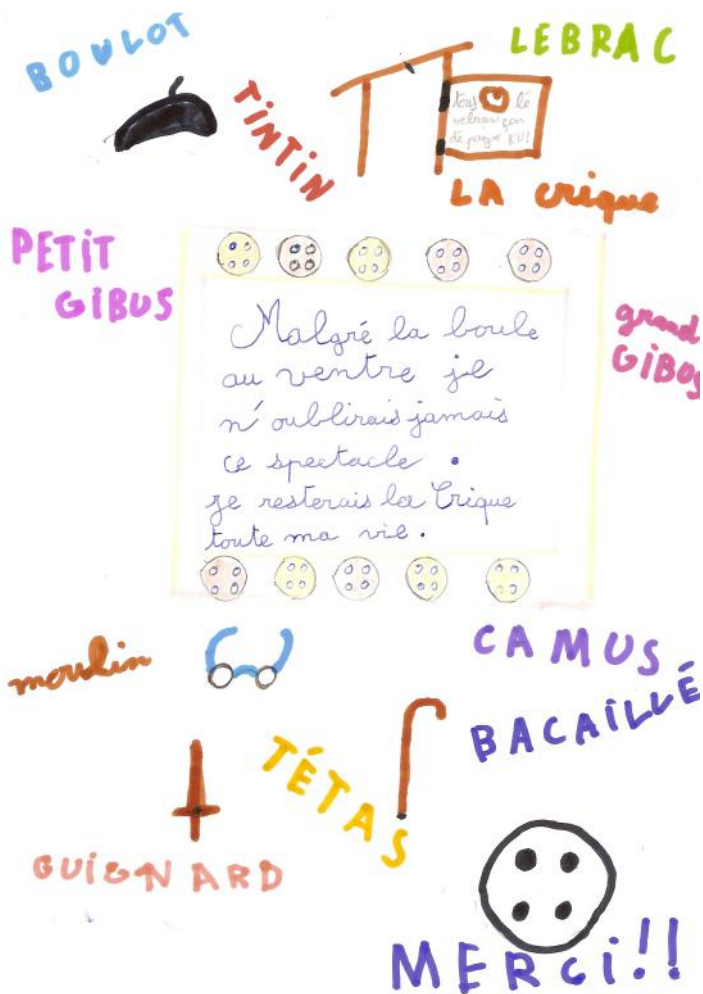 BOULOT
LEBRAC
TINTIN
tous lé
velran çon
dé paigne KU!
LA crique
PETIT
GIBUS
grand
GIBUS
Malgré la boule
au ventre je
n'oublirais jamais
ce spectacle.
je resterais la Crique
toute ma vie.
moulin
CAMUS
BACAILLÉ
TÉTAS
GUIGNARD
MERCI!!